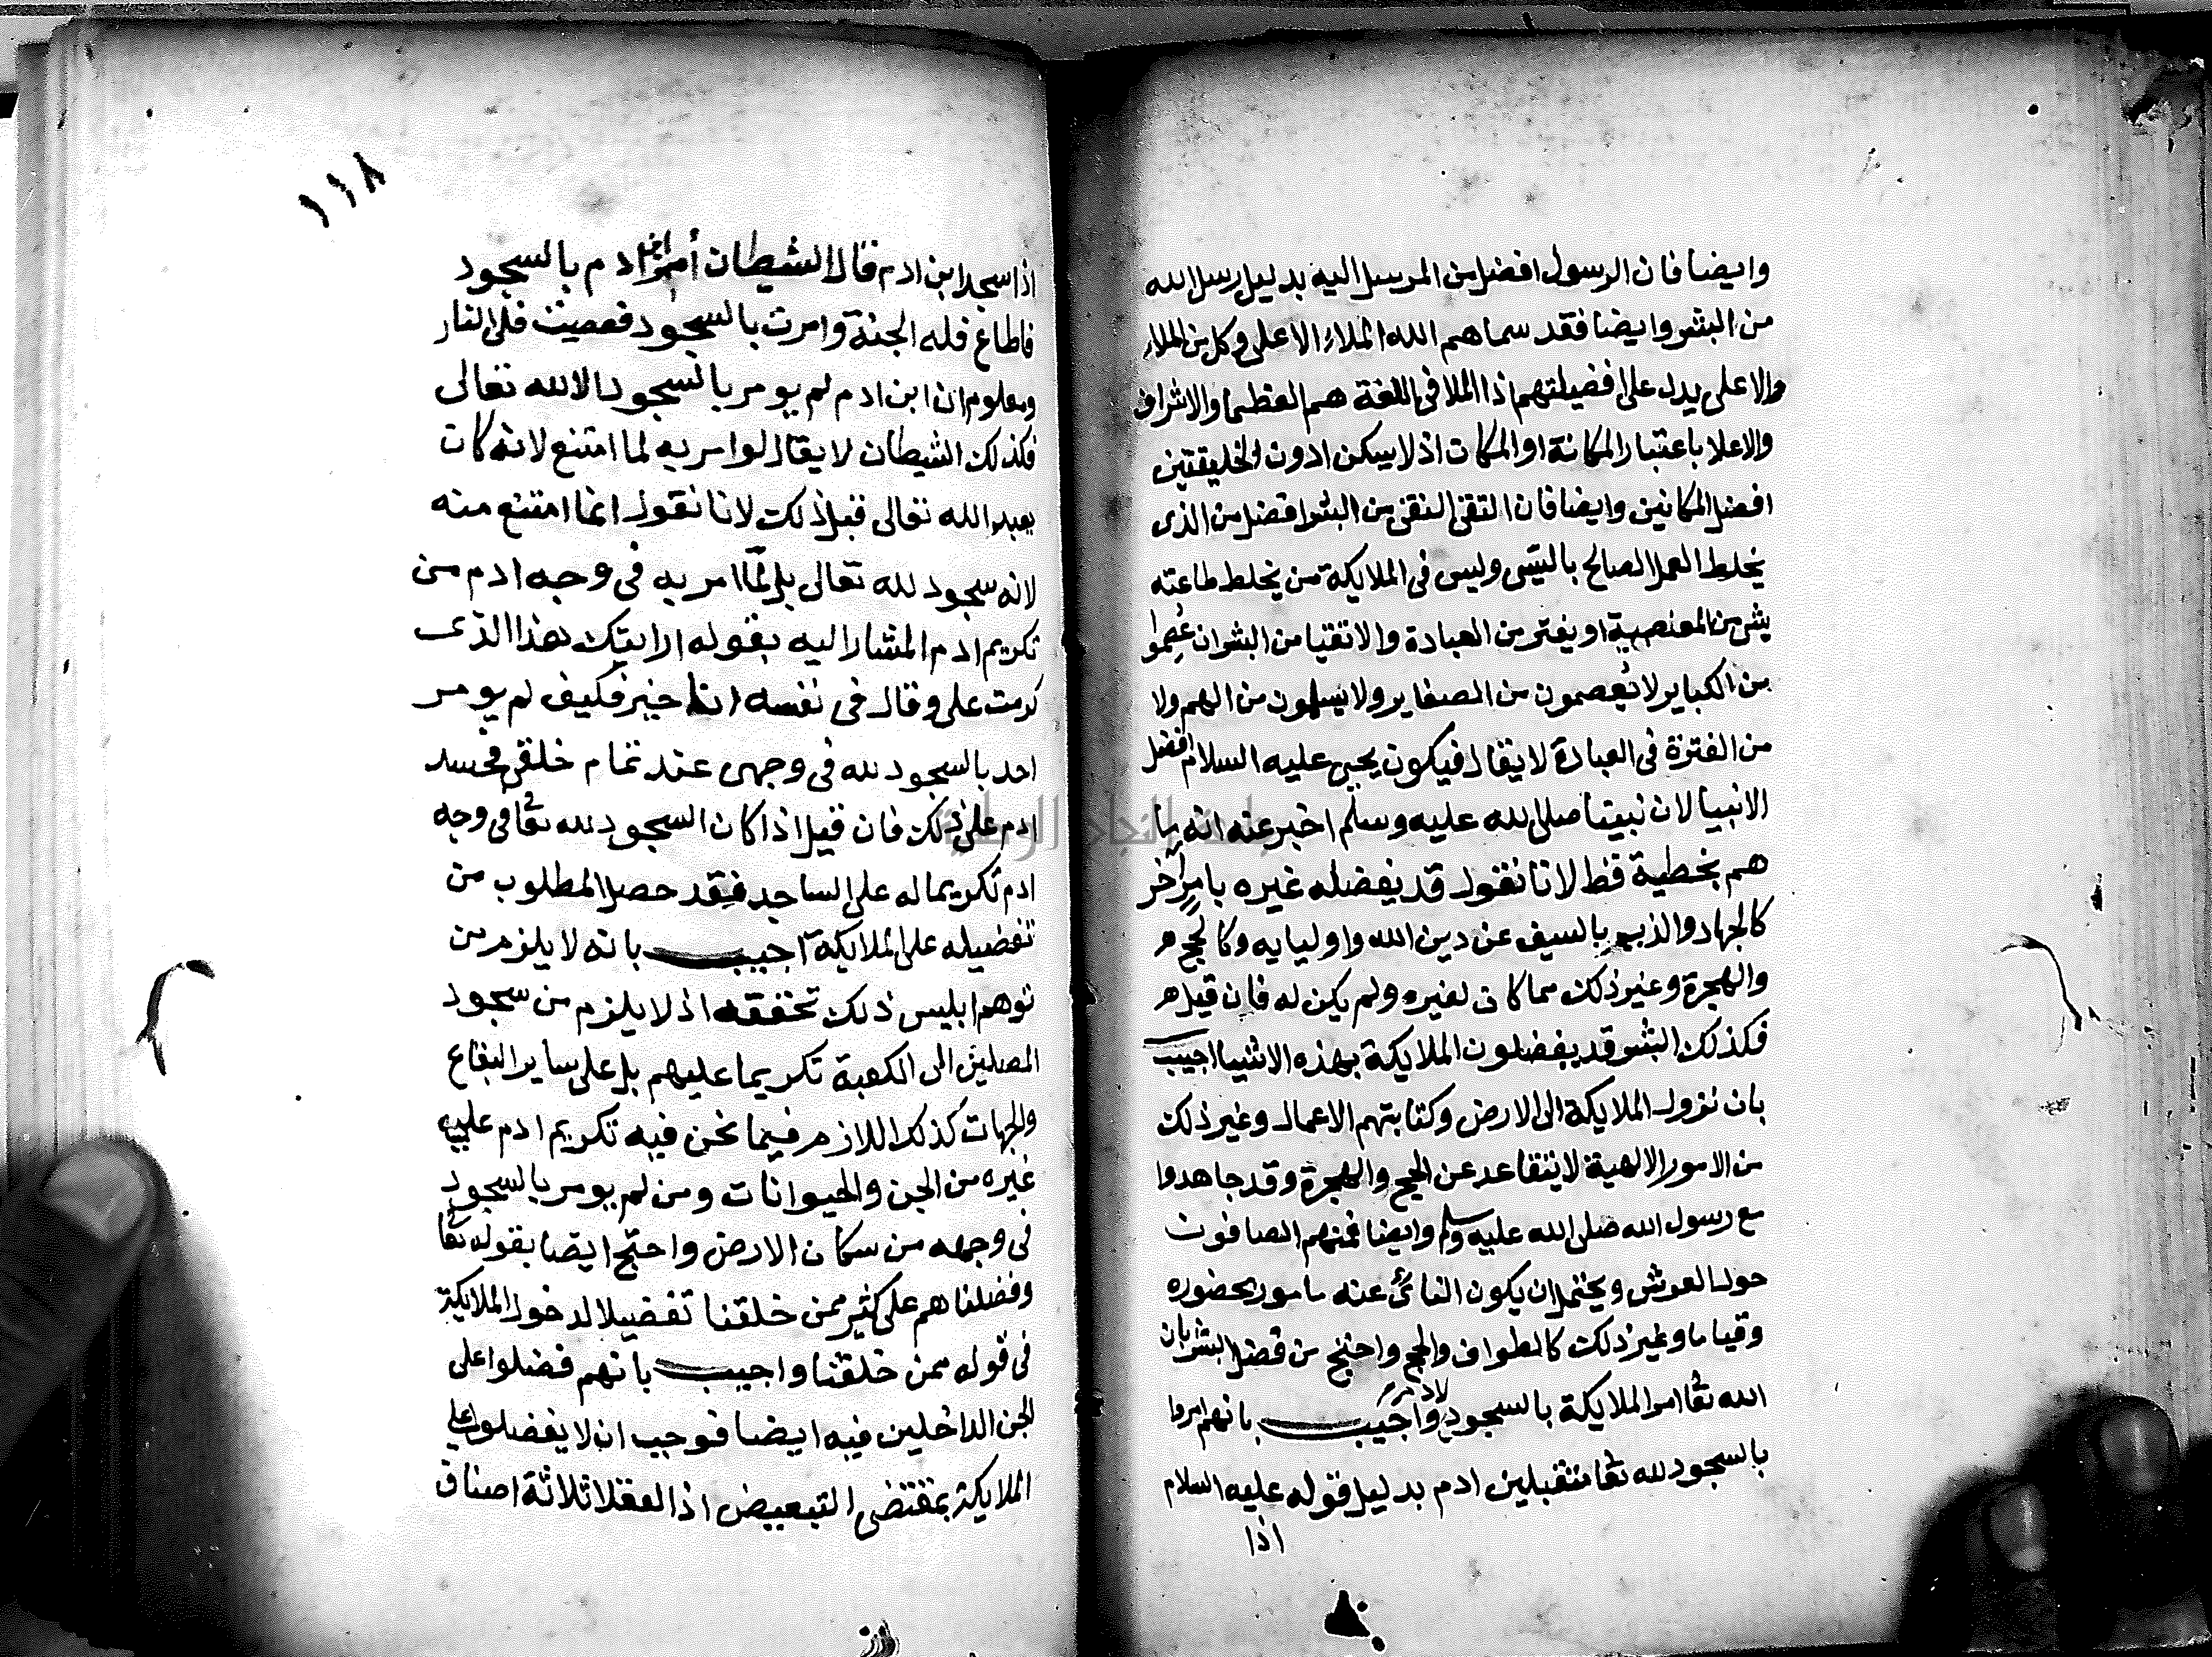 وايضا فان الرسول افضل من المرسل اليه بدليل رسل الله
من البشر وايضا فقد سماهم الله الملاء الاعلى وكل من الملاء
والاعلى يدل على افضيلتهم اذ الملا في اللغة هم العظما والاشراف
والاعلا باعتبار المكانة او المكان اذ لا يسكن ادون الخليقتين
افضل المكانين وايضا فان التقى النقى من البشر افضل من الذى
يخلط العمل الصالح بالسيى وليس في الملايكة من يخلط طاعته
بشى من المعصية او يفتر من العبادة والاتقيا من البشر ان عُصِموا
من الكباير لا يُعصمون من الصغاير ولا يسلمون من الهم ولا
من الفترة في العبادة لا يقال فيكون يحيى عليه السلام افضل
الانبيا لان نبينا صلى الله عليه وسلم اخبر عنه انه ما
هم بخطية قط لانا نقول قد يفضله غيره بامر آخر
كالجهاد والذب بالسيف عن دين الله واوليايه وكالحج
والهجرة وغير ذلك مما كان لغيره ولم يكن له فان قيل
فكذلك البشر قد يفضلون الملايكة بهذه الاشيا اجيب
بان نزول الملايكة الى الارض وكتابتهم الاعمال وغير ذلك
من الامور الالهية لا يتقاعد عن الحج والهجرة وقد جاهدوا
مع رسول الله صلى الله عليه وسلم وايضا فمنهم الصافون
حول العرش ويحتمل ان يكون النائى عنه مامور بحضوره
وقياما وغير ذلك كالطواف والحج واحتج من فضل البشر بان
الله تعا امر الملايكة بالسجود لادم واجيب بانهم امروا
بالسجود لله تعا متقبلين ادم بدليل قوله عليه السلام
اذا
١١٨
اذا سجد ابن ادم قال الشيطان أمر ابن ادم بالسجود
فاطاع فله الجنة وامرت بالسجود فعصيت فلى النار
ومعلوم ان ابن ادم لم يومر بالسجود الا لله تعالى
فكذلك الشيطان لا يقال لو امر به لما امتنع لانه كان
يعبد الله تعالى قبل ذلك لانا نقول انما امتنع منه
لانه سجود لله تعالى بل لمّا امر به في وجه ادم من
تكريم ادم المشار اليه بقوله ارايتك هذا الذى
كرمت على وقال في نفسه انا خير فكيف لم يومر
احد بالسجود لله في وجهى عند تمام خلقى فحسد
ادم على ذلك فان قيل اذا كان السجود لله تعا في وجه
ادم تكريما له على الساجد فقد حصل المطلوب من
تفضيله على الملايكة اجيب بانه لا يلزم من
توهم ابليس ذلك تحققه اذ لا يلزم من سجود
المصلين الى الكعبة تكريما عليهم بل على ساير البقاع
والجهات كذلك اللازم فيما نحن فيه تكريم ادم عليه
غيره من الجن والحيوانات ومن لم يومر بالسجود
في وجهه من سكان الارض واحتج ايضا بقوله تعا
وفضلناهم على كثير ممن خلقنا تفضيلا لدخول الملايكة
في قوله ممن خلقنا واجيب بانهم فضلوا على
الجن الداخلين فيه ايضا فوجب ان لا يفضلوا على
الملايكة بمقتضى التبعيض اذ العقلا ثلاثة اصناف